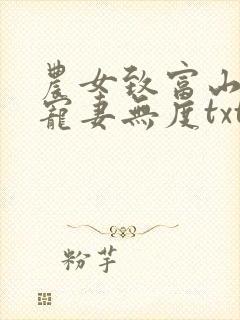 農女致富山
寵妻無度txt
粉芋